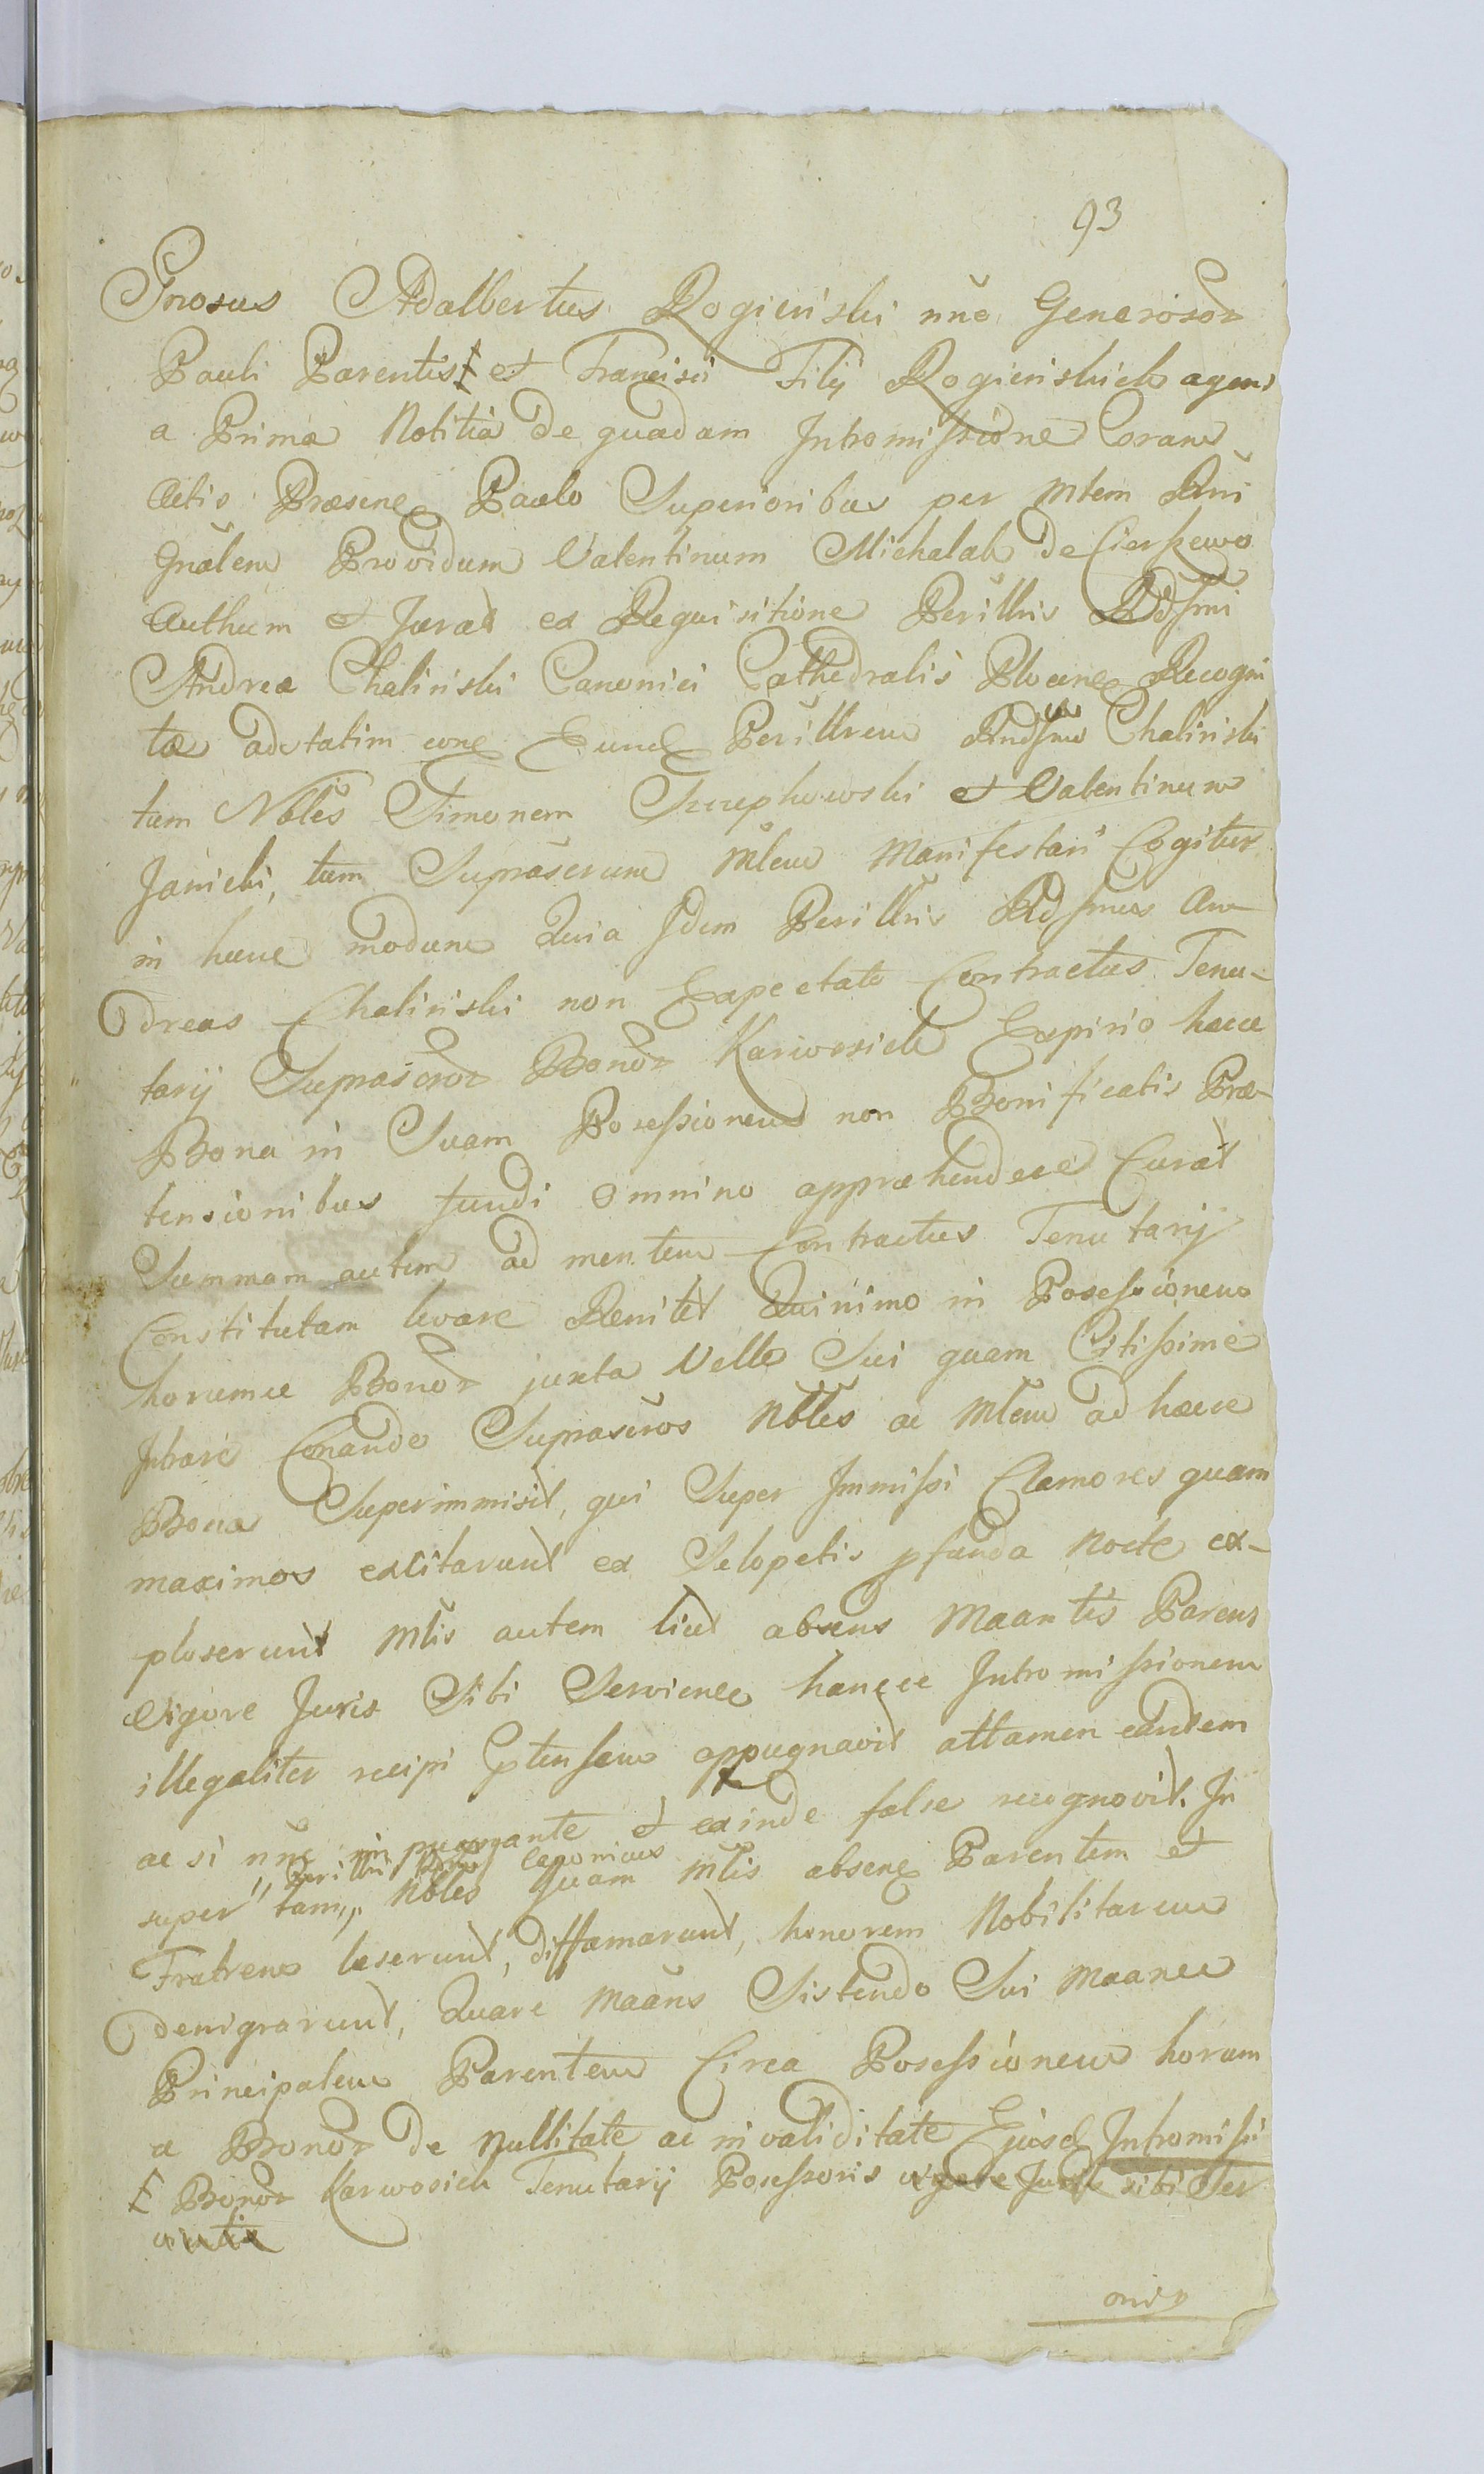 93
Gnosus Adalbertus Rogieński nñe Generosor
Pauli Parentis et Francisci Filij Rogienskich agens
a Prima Notitia de quadam Intromissione Coram
Actis Præsene Paulo Superioribus per Mlem Rñi
Gnãlem Providum Valentinum Michalak de Cierszewo
Authum et Jurat ex Requisitione Perillris Rdssmi
Andreæ Chalinski Canonici Cathedralis Plocene Recogni
tæ adctatim cone Eund Perillrem Rndssmu Chalinski
tum Nbles Simonem Szczepkowski et Valentinum
Janicki, tum Suprascrum Mlem Manifestari Cogitur
in hunc modum Quia Idem Perillris Rdssmus An-
dreas Chalinski non Expectato Contractus Tenu-
tarij Suprascror Bonor Karwosich Expirio hæcce
Bona in Suam Posessionem non Bonificatis Præ-
tensionibus fundi omnino appræhendere Curat
Summam autem ad mentem Contractus Tenutarij
Constitutam levare Renitet Quinimo in Posessionem
horumce Bonor juxta Velle Sui quam Citissime
Intrare Conando Suprascros Nbles ac Mlem ad hæcce
Bona Superimmisit, qui Super Immissi Clamores quam
maximos excitarunt ex Sclopetis pfunda Nocte ex-
ploserunt Mlis autem licet absens Maantis Parens
vigore Juris Sibi Serviene hancce Intromissionem
illegaliter recipi ptensam oppugnavit attamen eandem
ac si nñe impugnante et exinde false recognovit. In
Perillri Rdss Canonicus
super tam,, Nbles quam Mlis absene Parentem et
Fratrem læserunt, diffamarunt, honorem Nobilitarem
denigrarunt, Quare Maans Sistendo Sui Maanee
Principalem Parentem Circa Posessionem horum
ce Bonor de Nullitate ac invaliditate Ejusd Intromissi
Bonor Karwosich Tenutarij Posessoris vigore Juris sibi Ser
vientis
onis